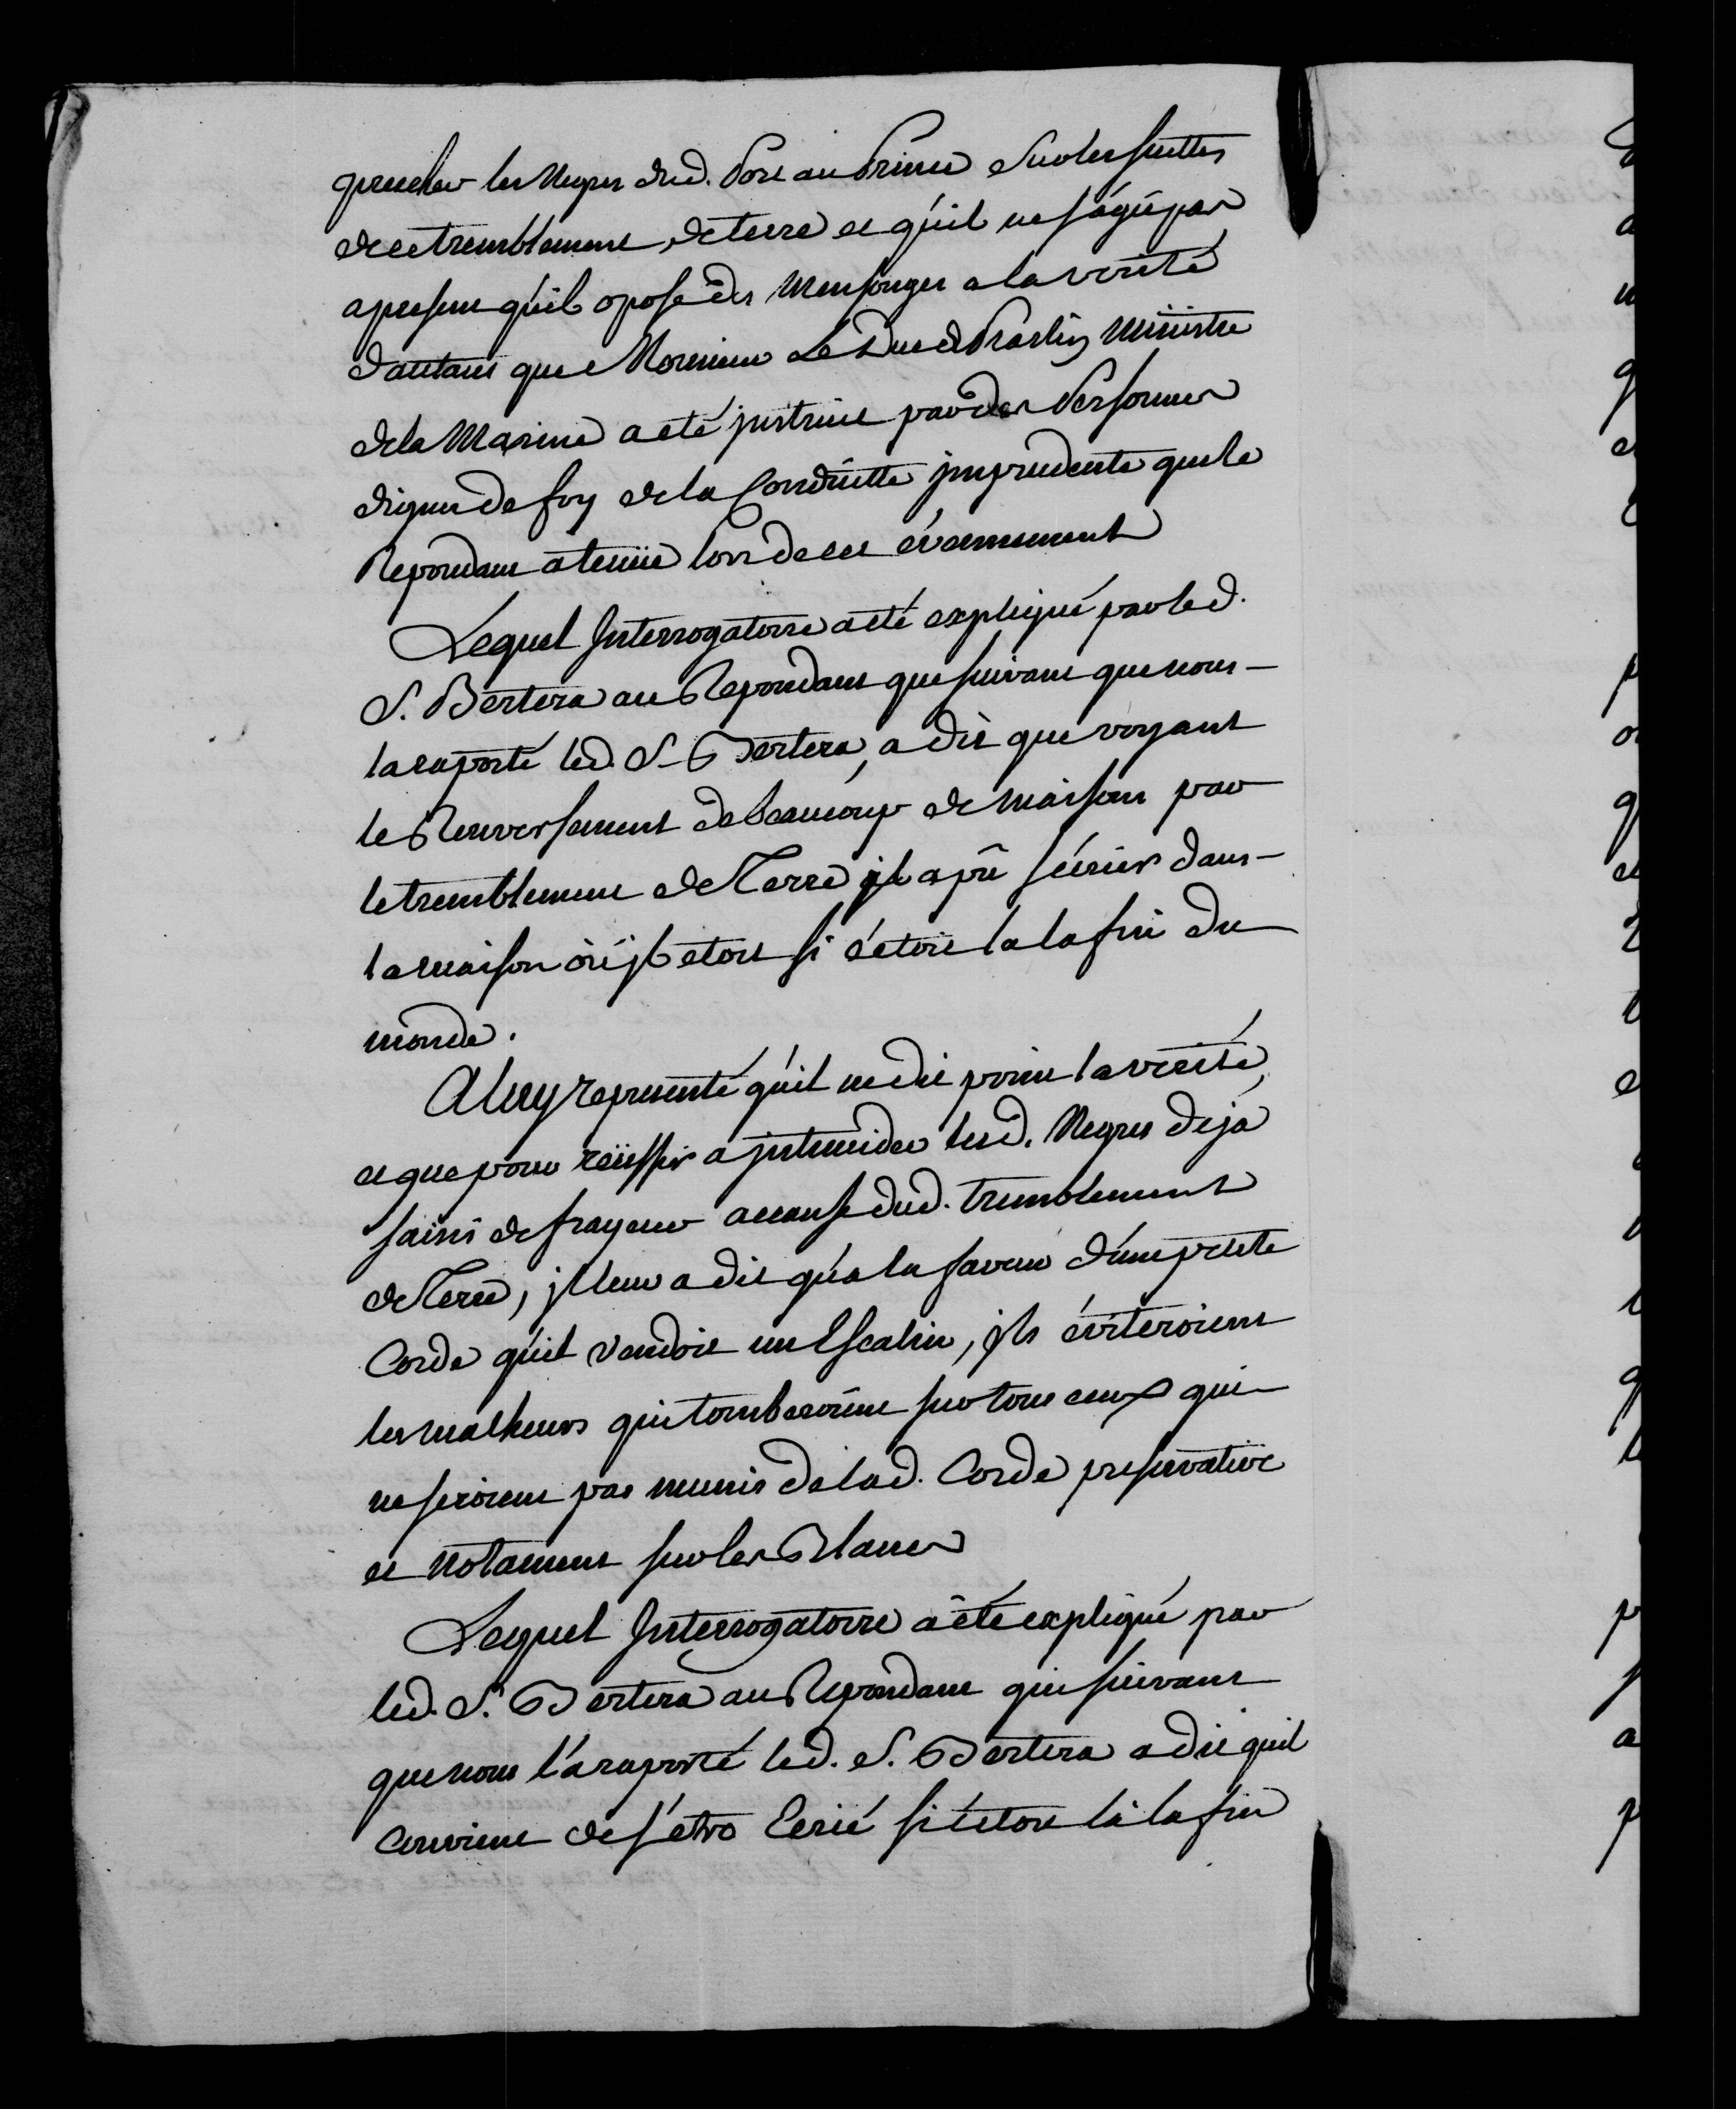 precher les Negres dud. Port au Prince Sur les suittes
de ce tremblement de terre et qu'il ne s'agit pas
apresent qu'il opose des Mensonges a la verité
d'autant que Monsieur Le Duc de Praslin Ministre
de la Marine a eté jnstruit par des Personnes
dignes de foy de la Conduitte jmprudente que le
Repondant a tenüe lors de cet évennement
Lequel Interrogatoire a eté expliqué par led.
S. Bertera au Repondant que suivant que nous
la raporté led. S. Bertera, a dit que voyant
le Renversement de beaucoup de Maisons par
le tremblement de Terre jl a pû s'écrier dans
la maison où jl etoit si c'etoit la la fin du
monde.
A luy representé qu'il ne dit point la verité,
et que pour reüssir a jntimider lesd. Negres deja
saisis de frayeur a cause dud. tremblement
de Terre, jl leur a dit qu'a la faveur d'une petite
Corde qu'il vendoit un Escalin, jls éviteroient
les malheurs qui tomberoient sur tous ceux qui
ne seroient pas munis de lad. Corde preservative
et notament sur les Blancs
Lequel Interrogatoire a été expliqué par
led. S. Bertera au Repondant qui suivant
que nous l'a raporté led. S. Bertera a dit quil
Convient de s'etre Ecrié si c'etoit là la fin